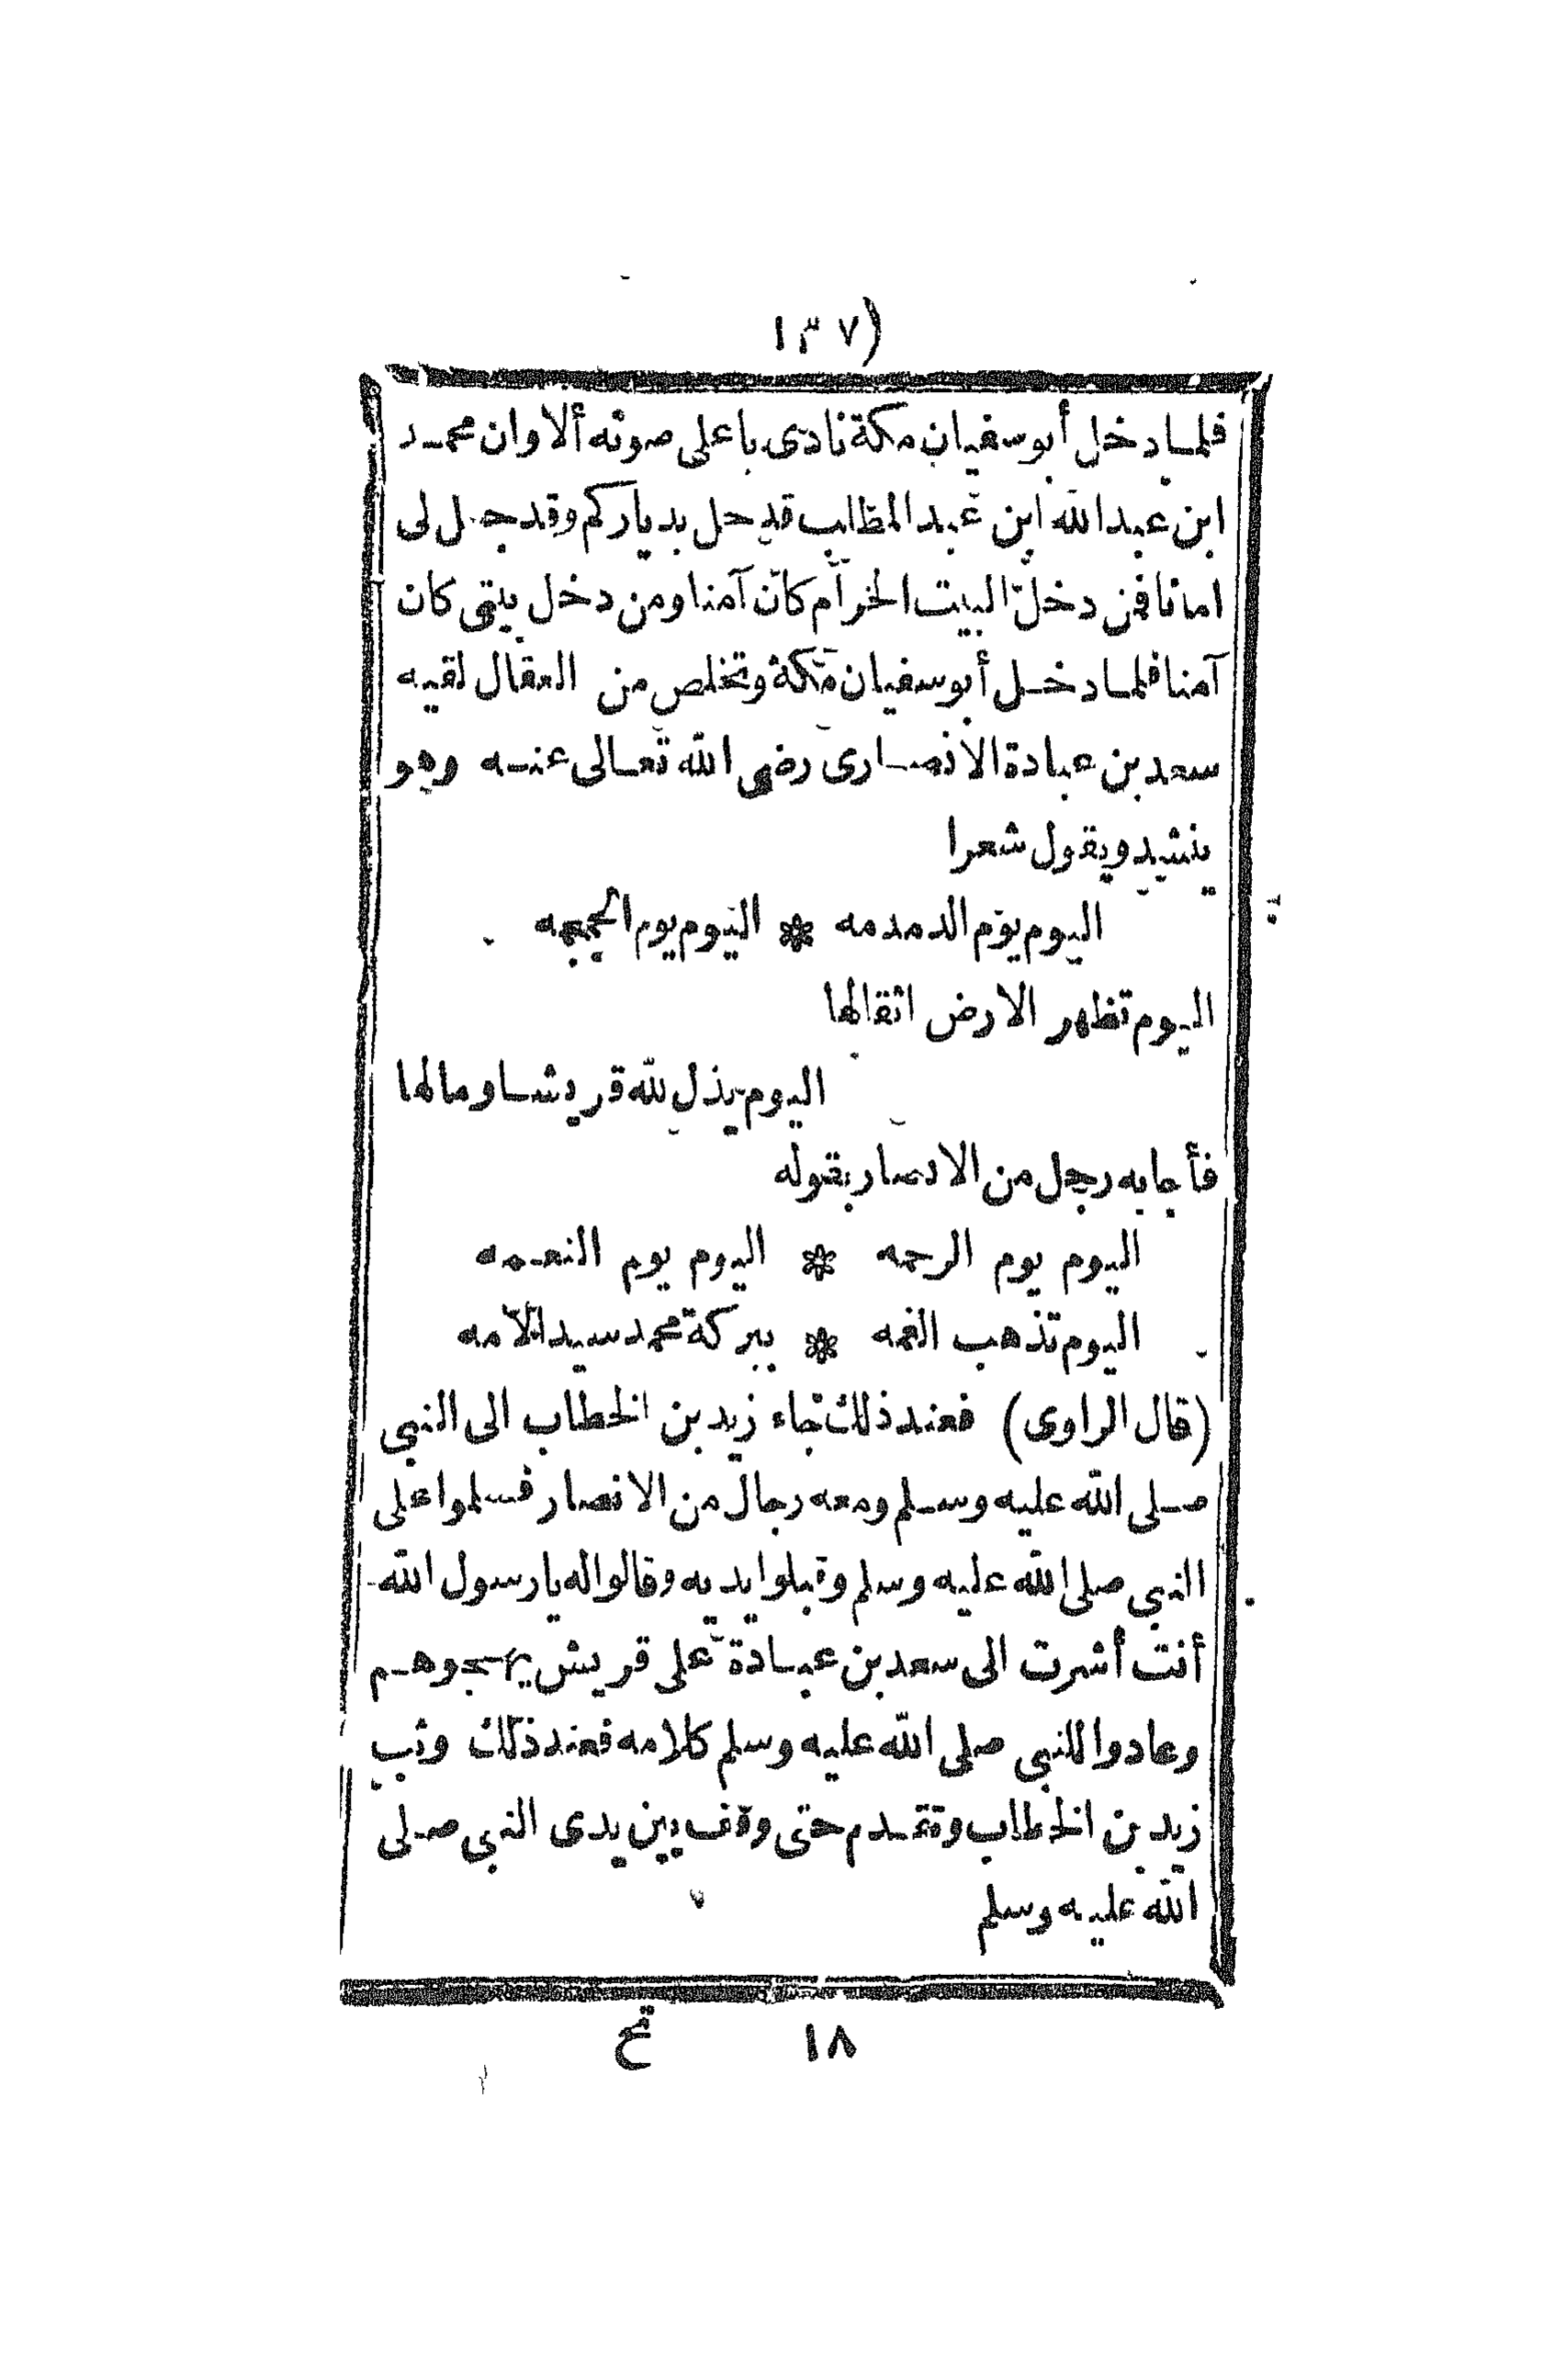 (١٣٧
فلما دخل أبو سفيان مكة نادى باعلى صوته ألا وان محمد
ابن عبد الله ابن عبد المطلب قد حل بدياركم وقد جعل لى
امانا فمن دخل البيت الحرام كان آمنا ومن دخل بيتى كان
آمنا فلما دخل أبو سفيان مكة وتخلص من العقال لقيه
سعد بن عبادة الانصارى رضى الله تعالى عنه وهو
ينشد ويقول شعرا
اليوم يوم الدمدمه * اليوم يوم الجمجمه
اليوم تظهر الارض اثقالها
اليوم يذل لله قريشا ومالها
فأجابه رجل من الانصار بقوله
اليوم يوم الرحمه * اليوم يوم النعمه
اليوم تذهب الغمه * ببركة محمد سيد الامه
(قال الراوى) فعند ذلك جاء زيد بن الخطاب الى النبى
صلى الله عليه وسلم ومعه رجال من الانصار فسلموا على
النبى صلى الله عليه وسلم وقبلوا يديه وقالوا له يا رسول الله
أنت أشرت الى سعد بن عبادة على قريش يهجوهم
وعادوا للنبى صلى الله عليه وسلم كلامه فعند ذلك وثب
زيد بن الخطاب وتقدم حتى وقف بين يدى النبى صلى
الله عليه وسلم
١٨ فتح